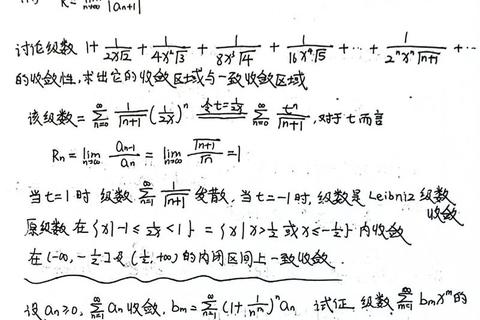 R = lim n→∞ |an+1|
讨论级数 1+ 1/(2x√2) + 1/(4x²√3) + 1/(8x³√4) + 1/(16x⁴√5) + ⋯ + 1/(2ⁿxⁿ√(n+1)) + ⋯
的收敛性,求出它的收敛区域与一致收敛区域
该级数 = ∑_{n=0}^∞ 1/√(n+1) (1/2x)ⁿ 令t=1/2x ∑_{n=0}^∞ tⁿ/√(n+1), 对于t而言
Rn = lim n→∞ an-1/an = lim n→∞ √(n+1)/√n = 1
当t=1时 级数 ∑_{n=1}^∞ 1/√(n+1) 发散, 当t=-1时, 级数是Leibniz级数
收敛
原级数在{x|-1≤1/2x<1} = {x|x>1/2或x≤-1/2}内收敛
在(-∞,-1/2]及(1/2,+∞)的内闭区间上一致收敛.
设an≥0, ∑_{n=1}^∞ an收敛, bm = ∑_{n=1}^∞ (1+1/nᵐ)ⁿ an 试证 级数 ∑_{m=1}^∞ bm xᵐ的